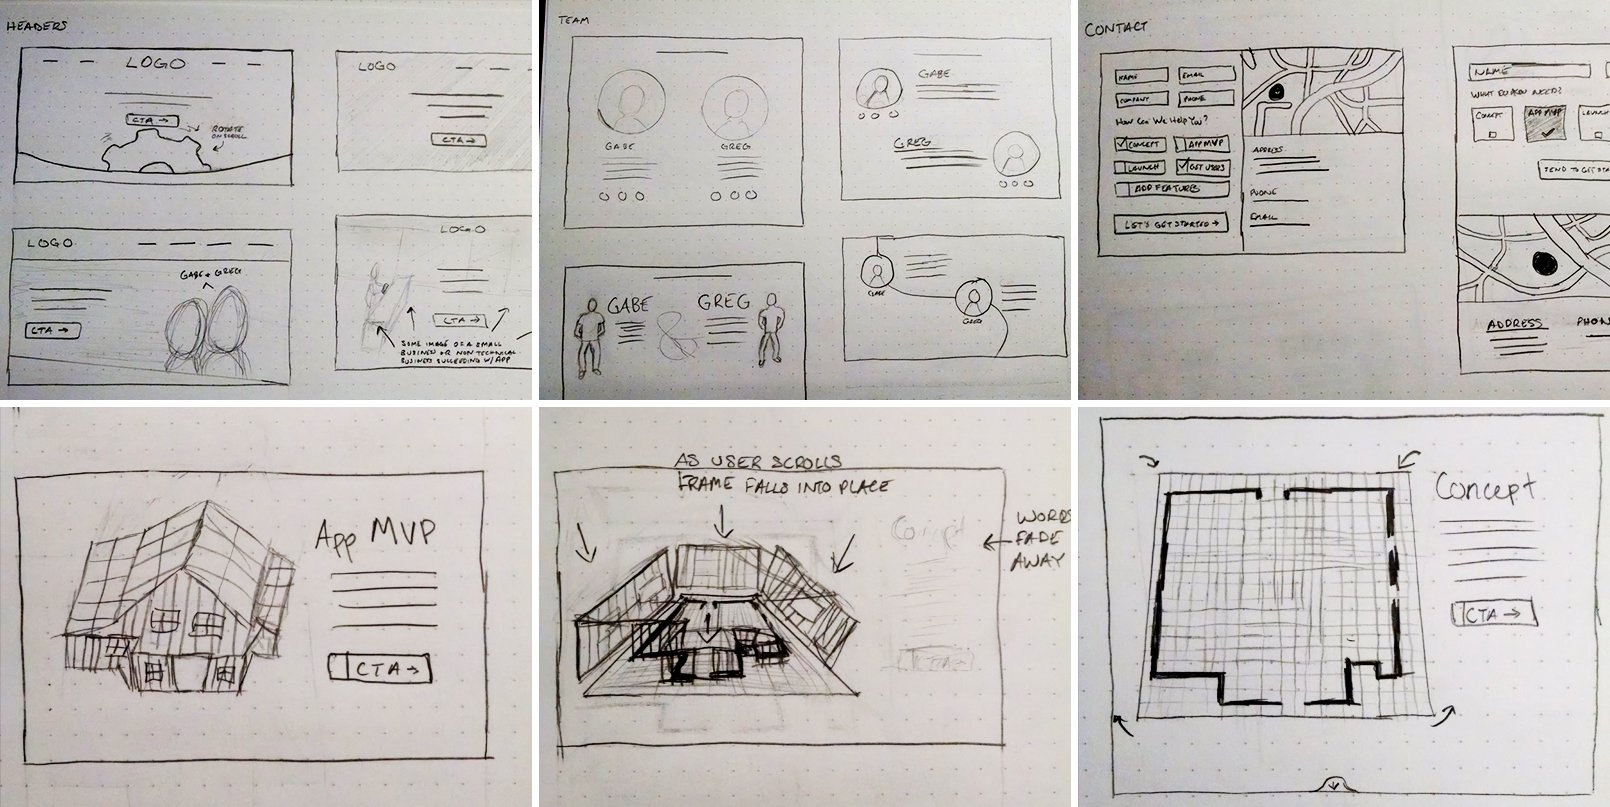 HEADERS
LOGO
CTA →
ROTATE
ON SCROLL
LOGO
CTA →
LOGO
GABE & GREG
CTA →
LOGO
CTA →
SOME IMAGE OF A SMALL
BUSINESS OR NON TECHNICAL
BUSINESS SUCCEEDING W/ APP
TEAM
GABE
GREG
GABE
GREG
GABE & GREG
GABE
GREG
CONTACT
NAME
EMAIL
COMPANY
PHONE
How Can We Help You?
CONCEPT
APP MVP
LAUNCH
GET USERS
ADD FEATURES
LET'S GET STARTED →
ADDRESS
PHONE
EMAIL
NAME
WHAT DO YOU NEED?
CONCEPT
APP MVP
LAUNCH
SEND TO GET STA
ADDRESS
PHON
App MVP
CTA →
AS USER SCROLLS
FRAME FALLS INTO PLACE
Concept
WORDS
FADE
AWAY
CTA →
Concept
CTA →